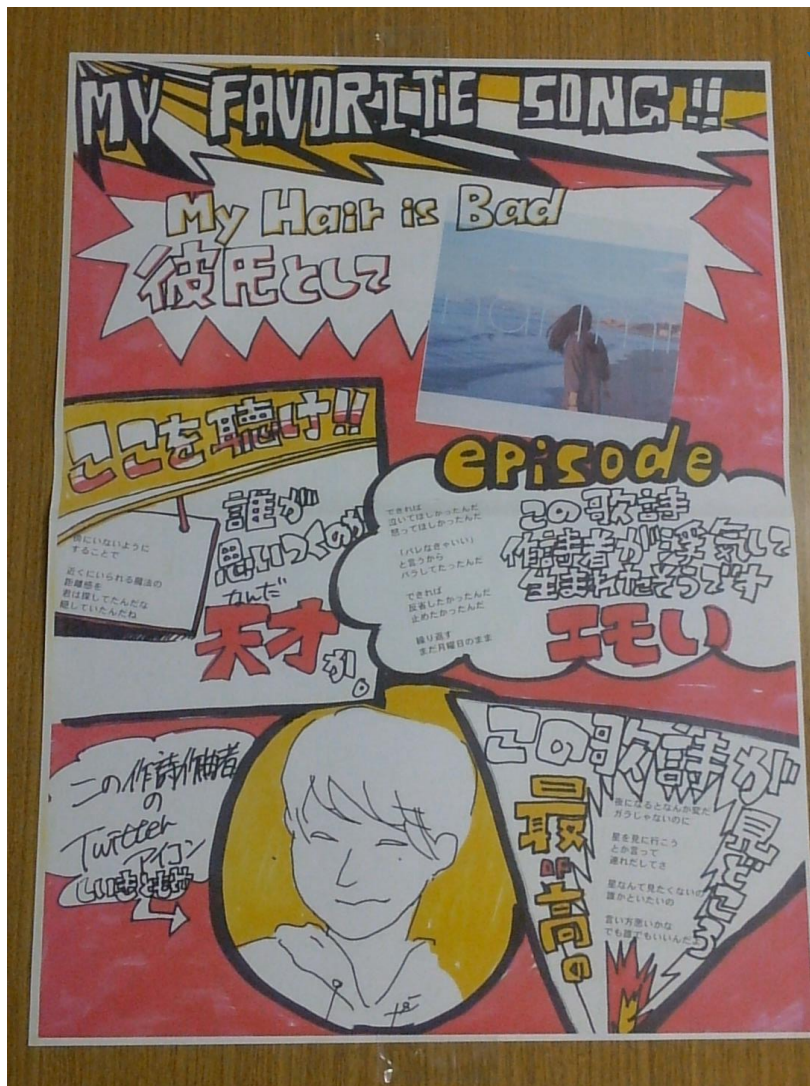 MY FAVORITE SONG!!
My Hair is Bad
彼氏として
ここを聴け!!
誰が
思いつくのか
なんだ
天才か。
にいないように
することで
近くにいられる魔法の
距離感を
君は探してたんだな
隠していたんだね
episode
できれば
泣いてほしかったんだ
怒ってほしかったんだ
(バレなきゃいい)
と言うから
バラしてたったんだ
できれば
反省したかったんだ
止めたかったんだ
繰り返す
まだ月曜日のまま
この歌詩
作詩者が浮気して
生まれたそうです
エモい
この作詩作曲者
の
Twitter
アイコン
しいきともみ
この歌詩が
見どころ
最OF高の
夜になるとなんか変だ
ガラじゃないのに
星を見に行こう
とか言って
連れだしてさ
星なんて見たくないの
誰かといたいの
言い方悪いかな
でも誰でもいいんだよ